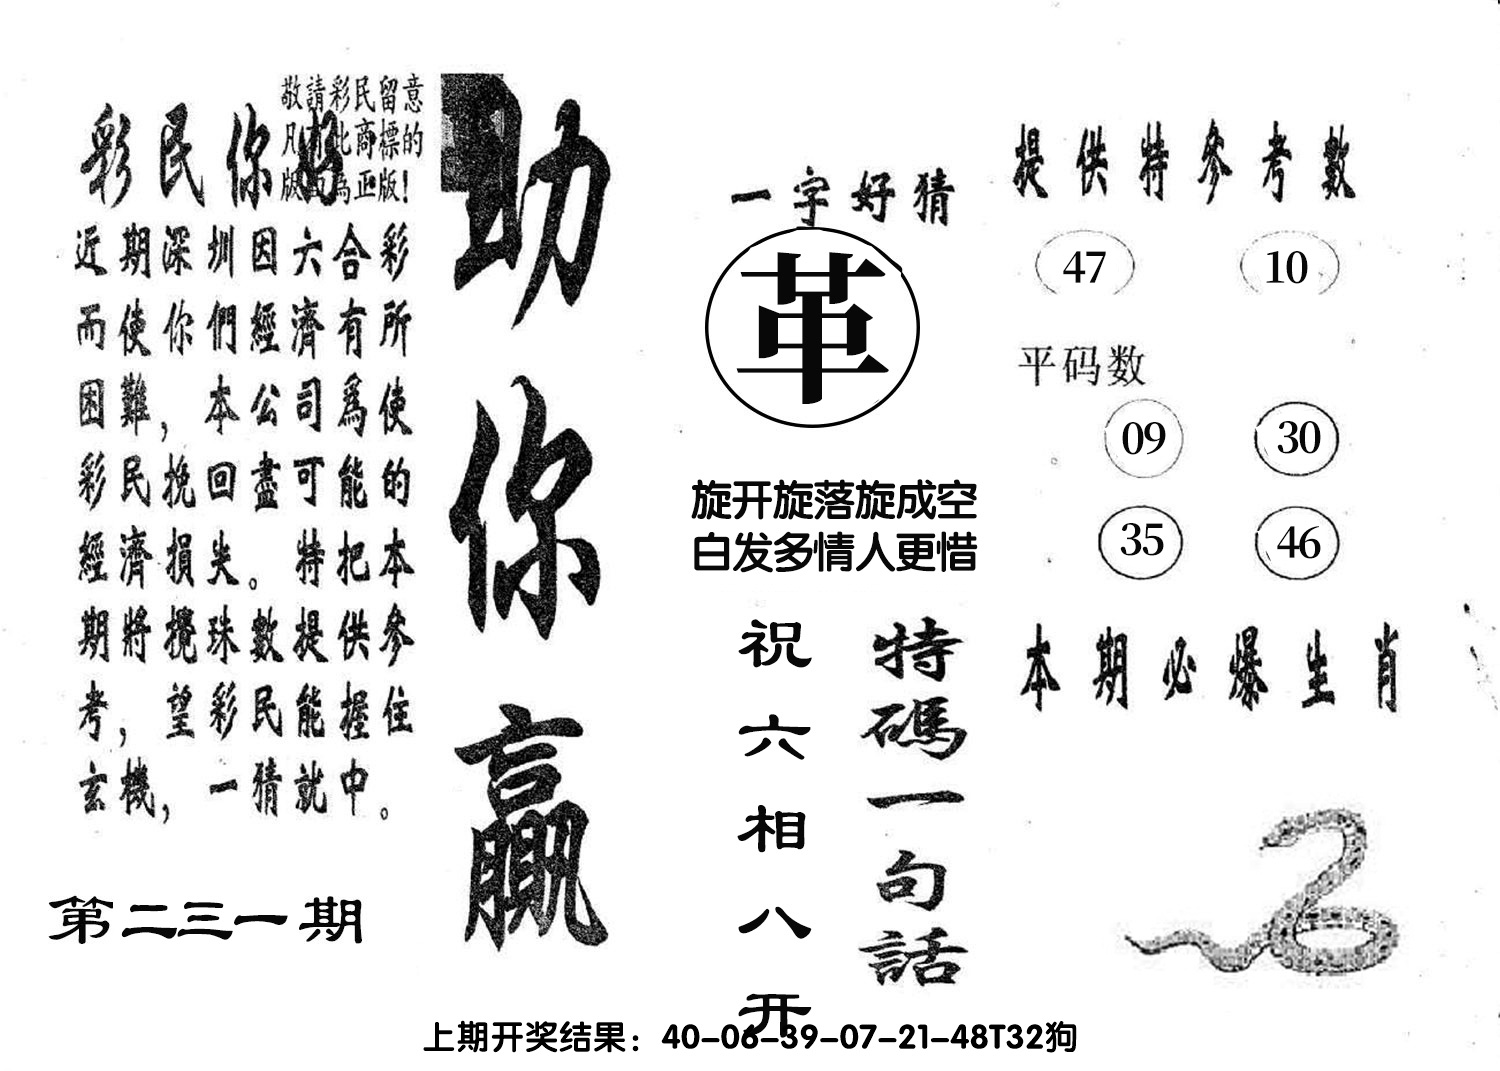 敬請彩民留意
凡有此商標的
版面為正版！
彩民你好
近期深圳因六合彩
而使你們經濟有所
困難，本公司爲使
彩民挽回盡可能的
經濟損失。特把本
期將攪珠數提供參
考，望彩民能握住
玄機，一猜就中。
第二三一期
助你贏
一字好猜
革
旋开旋落旋成空
白发多情人更惜
特碼一句話
祝六相八开
提供特参考數
47 10
平码数
09 30
35 46
本期必爆生肖
上期开奖结果：40-06-39-07-21-48T32狗